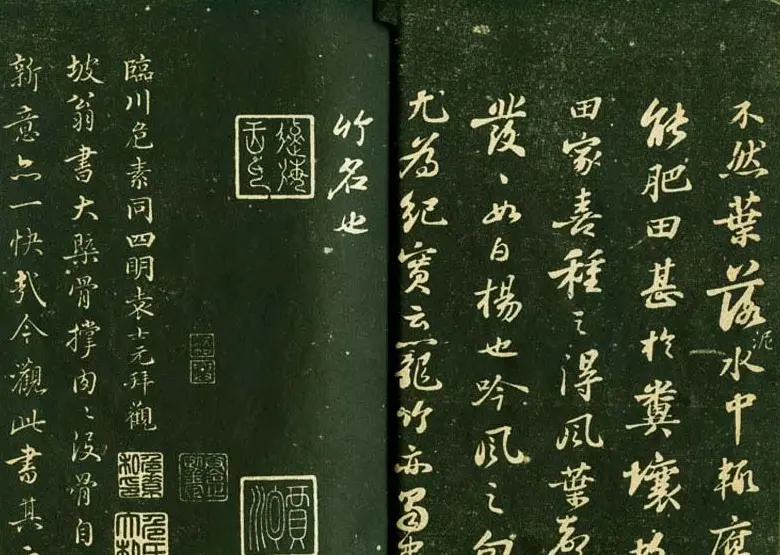 不然葉落水泥中輒腐
能肥田甚於糞壤故
田家喜種之得風葉聲
發〻如白楊也吟風之句
尤為紀實云籠竹亦蜀中
竹名也
臨川危素同四明袁士元拜觀
坡翁書大槩骨撐肉〻沒骨自
新意亦一快哉今觀此書其